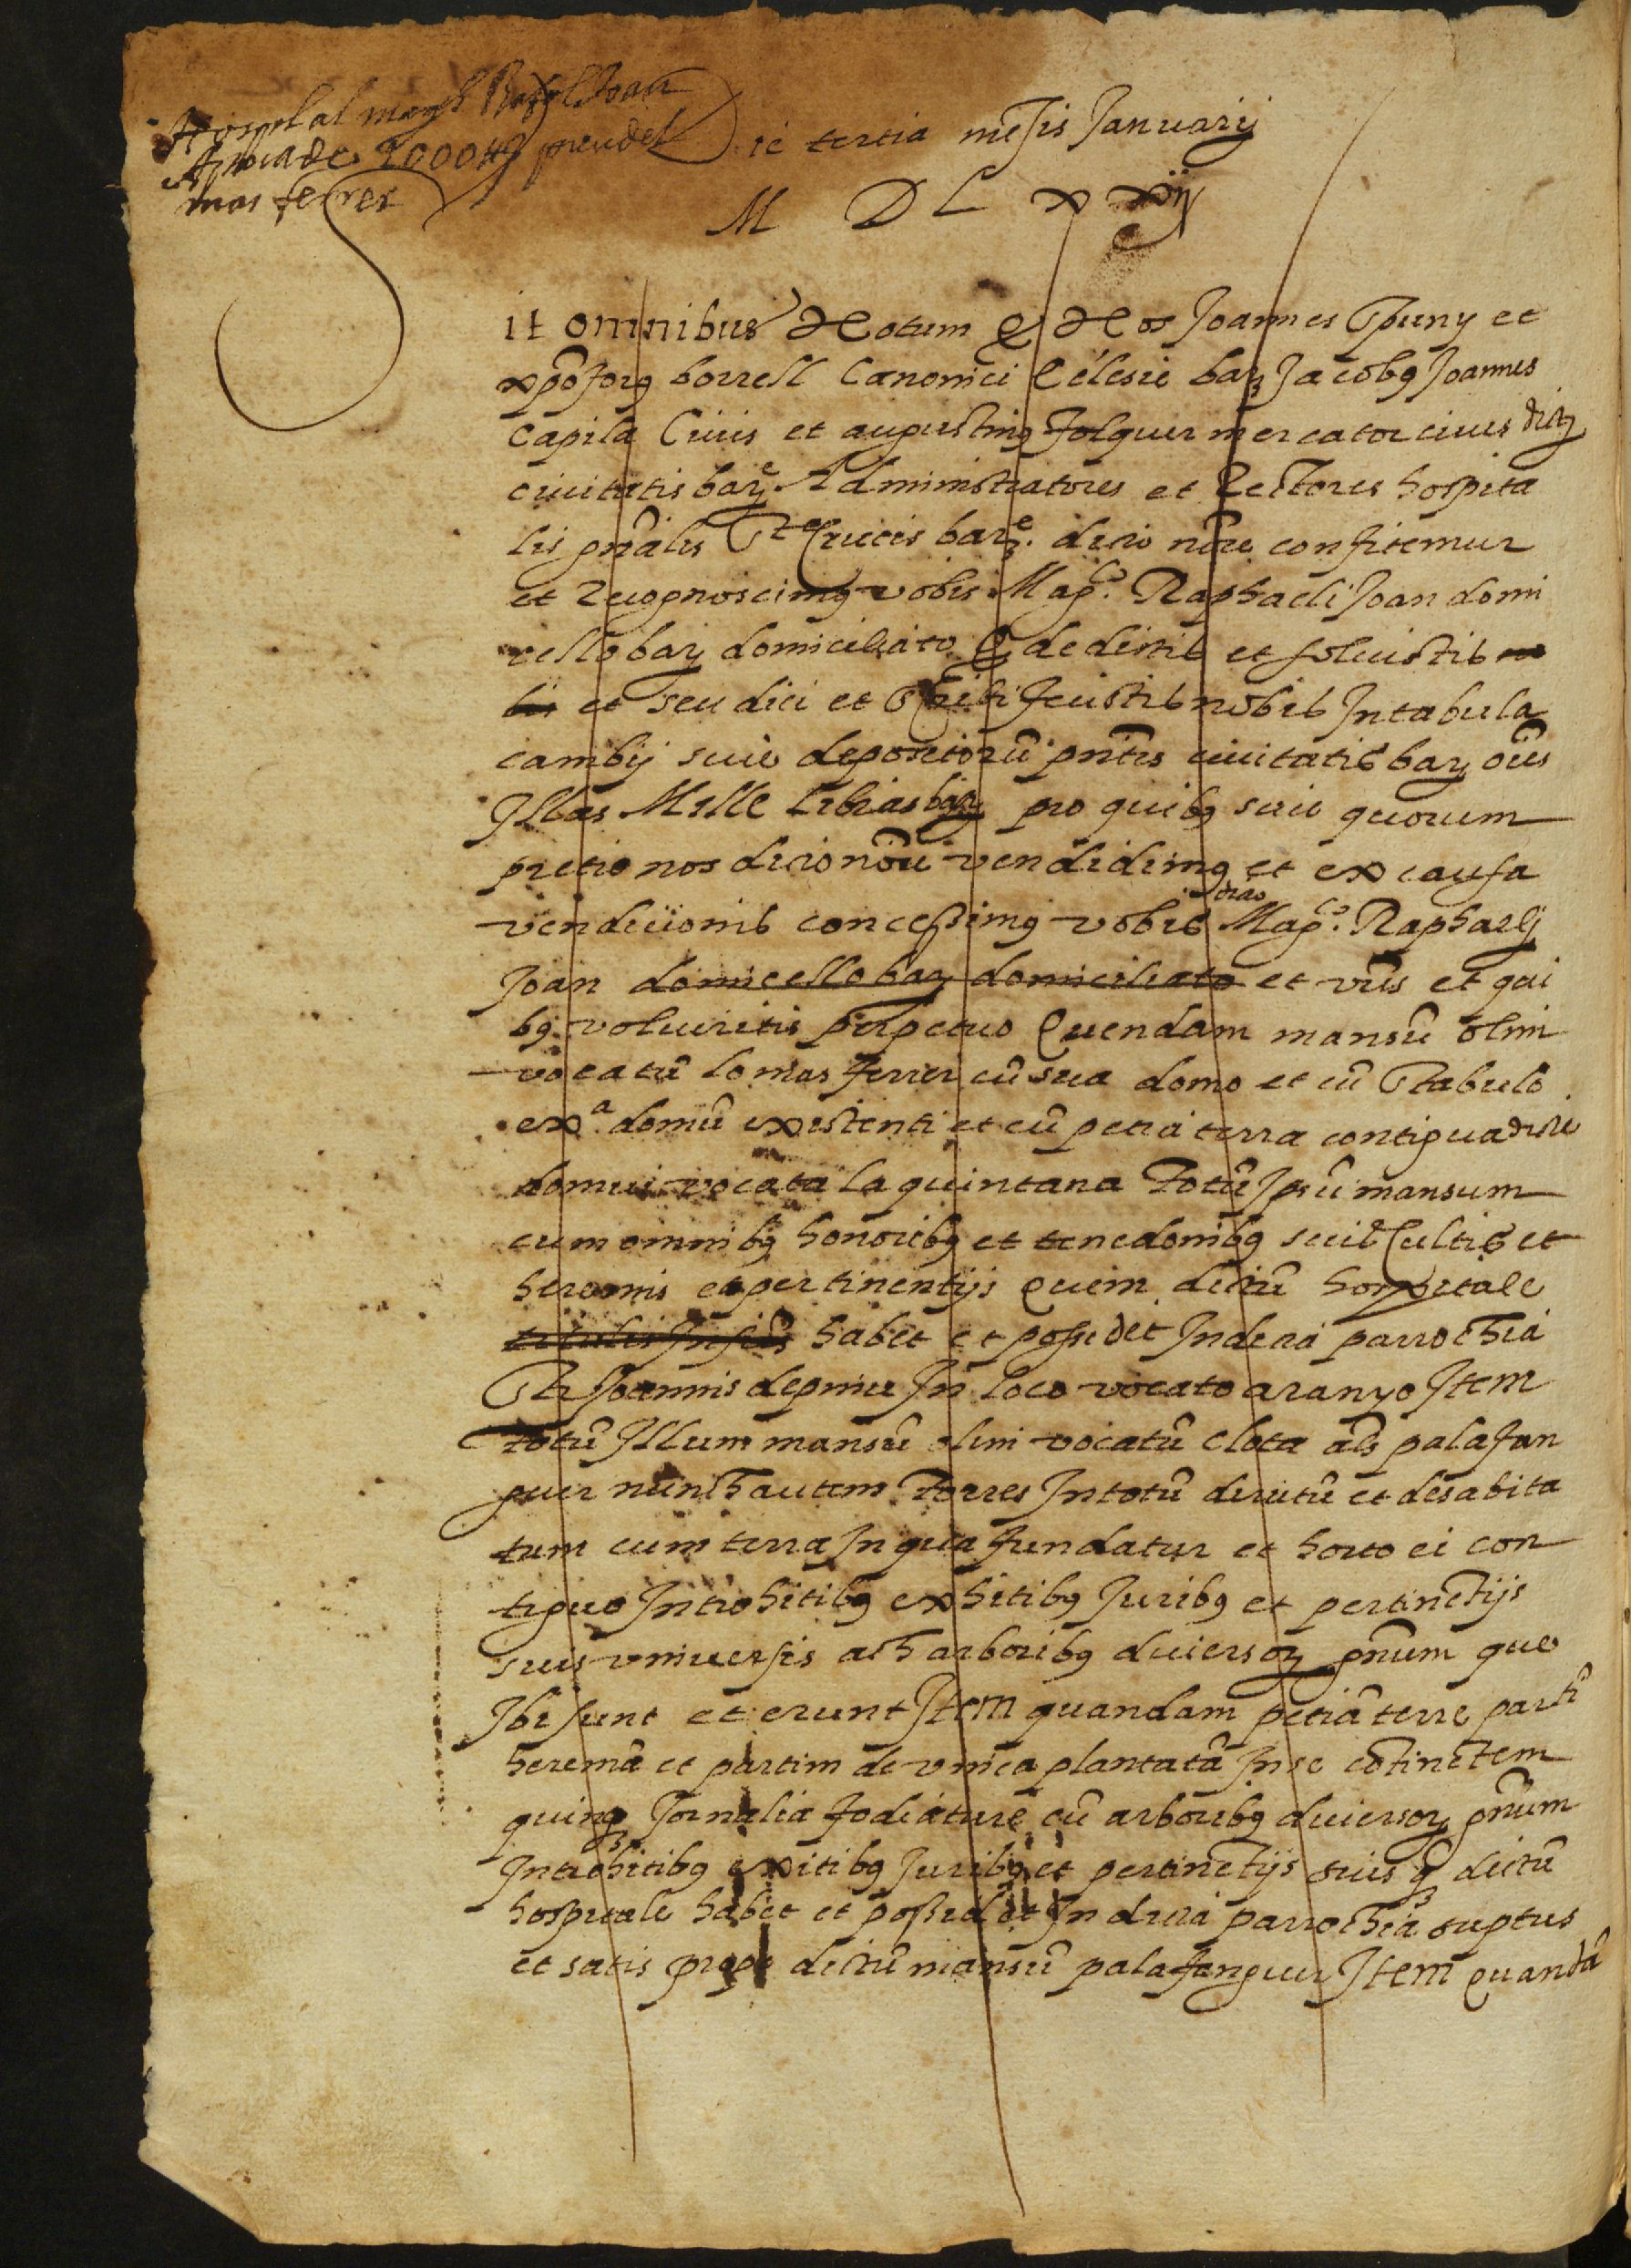 Hospital mag.ch Rafel Joan
Apoca de 1000 ₶ preu del
mas ferrer
Die tertia mēsis Januarij
M D L x xiij
it omnibus Notum q̨ Nos Joannes Spuny et
xpōforꝯ borrell Canonici Eclesie barꝫ Jacobꝯ Joannes
Capila Civis et augustinꝯ folguer mercator civis dictꝫ
civitatis barꝫᵉ Administratores et Rectores hospita
lis gn̄alis Steͤ Crucis barꝫᵉ. dicto nōīe confitemur
et Recognoscimꝯ vobis Mag.co Raphaeli Joan domi
cello barꝫ domiciliato q̨ dedistis et solvistis no
bis et seu dici et scribi fecistis nobis In tabula
cambij sive depositorū pn̄tis civitatis barꝫ oēs
Illas Mille libras barꝫ pro quibꝯ sive quorum
pretio nos dicto nōīe vendidimꝯ et ex causa
vendicionis concessimꝯ vobis dicto Mag.co Raphaelj
Joan domicello barꝫ domiciliato et vr̄is et qui
bꝯ volueritis perpetuo Quendam mansū olim
vocatū lo mas ferrer cū sua domo et cū stabulo
exᵃ domū existenti et cū petia terra contigua dicte
domui vocata la quintana Totū Ipsū mansum
cum omnibꝯ honoribꝯ et tenedonibꝯ suis Cultis et
heremis et pertinentijs Quem dictū hospitale
habet et possidet In dicta parrochia
Sti Joannis de pinu In loco vocato aranyo Item
totū Illum mansū olim vocatū clota al̄s palafan
guer nunch autem Torres In totū dirutū et desabita
tum cum terra In qua fundatur et horto ei con
tiguo Introhitibꝯ exhitibꝯ Juribꝯ et pertinētijs
suis universis ach arboribꝯ diversorꝫ gn̄um que
Ibi sunt et erunt Item quandam petiā terre partī
heremā et partim de vinea plantatā In se cōtinētem
quinqꝫ Jornalia fodiature cū arboribꝯ diversorꝫ gn̄um
Introhitibꝯ exitibꝯ Juribꝯ et pertinētijs suis qꝫ dictū
hospitale habet et possidet In dicta parrochia suptus
et satis prope dictū mansū palafanguer Item quandā